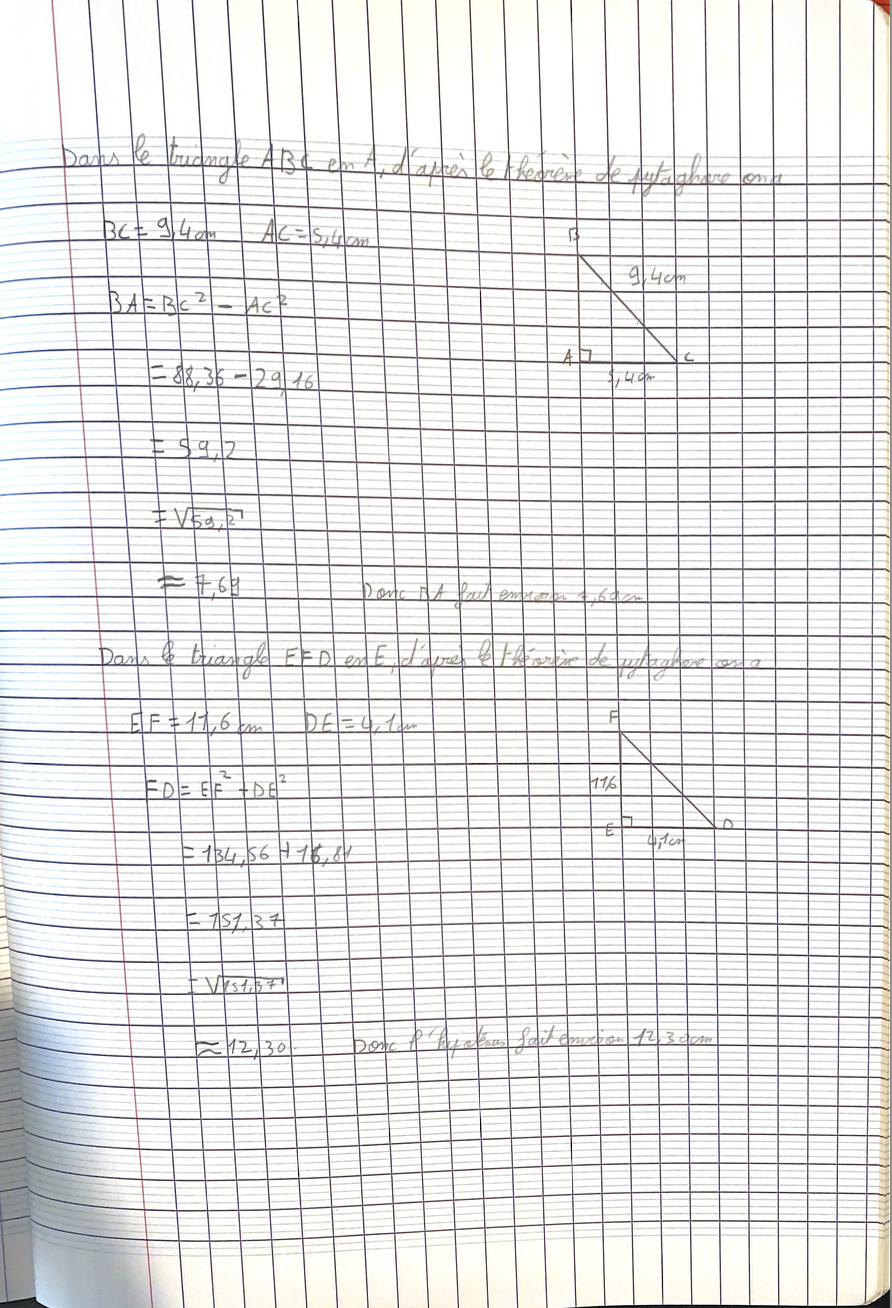 Dans le triangle ABC en A, d'après le théorène de pytaghore on a
BC = 9,4 cm AC = 5,4 cm
B
9,4 cm
A
C
5,4 cm
BA = BC² - AC²
= 88,36 - 29,16
= 59,2
= √59,2
≈ 7,69 Donc BA fait environ 7,69 cm
Dans le triangle EFD en E, d'après le théorène de pytaghore on a
EF = 11,6 cm DE = 4,1 cm
F
11,6
E
D
4,1 cm
FD = EF² + DE²
= 134,56 + 16,81
= 151,37
= √151,37
≈ 12,30 Donc l'hypoténus fait environ 12,30 cm